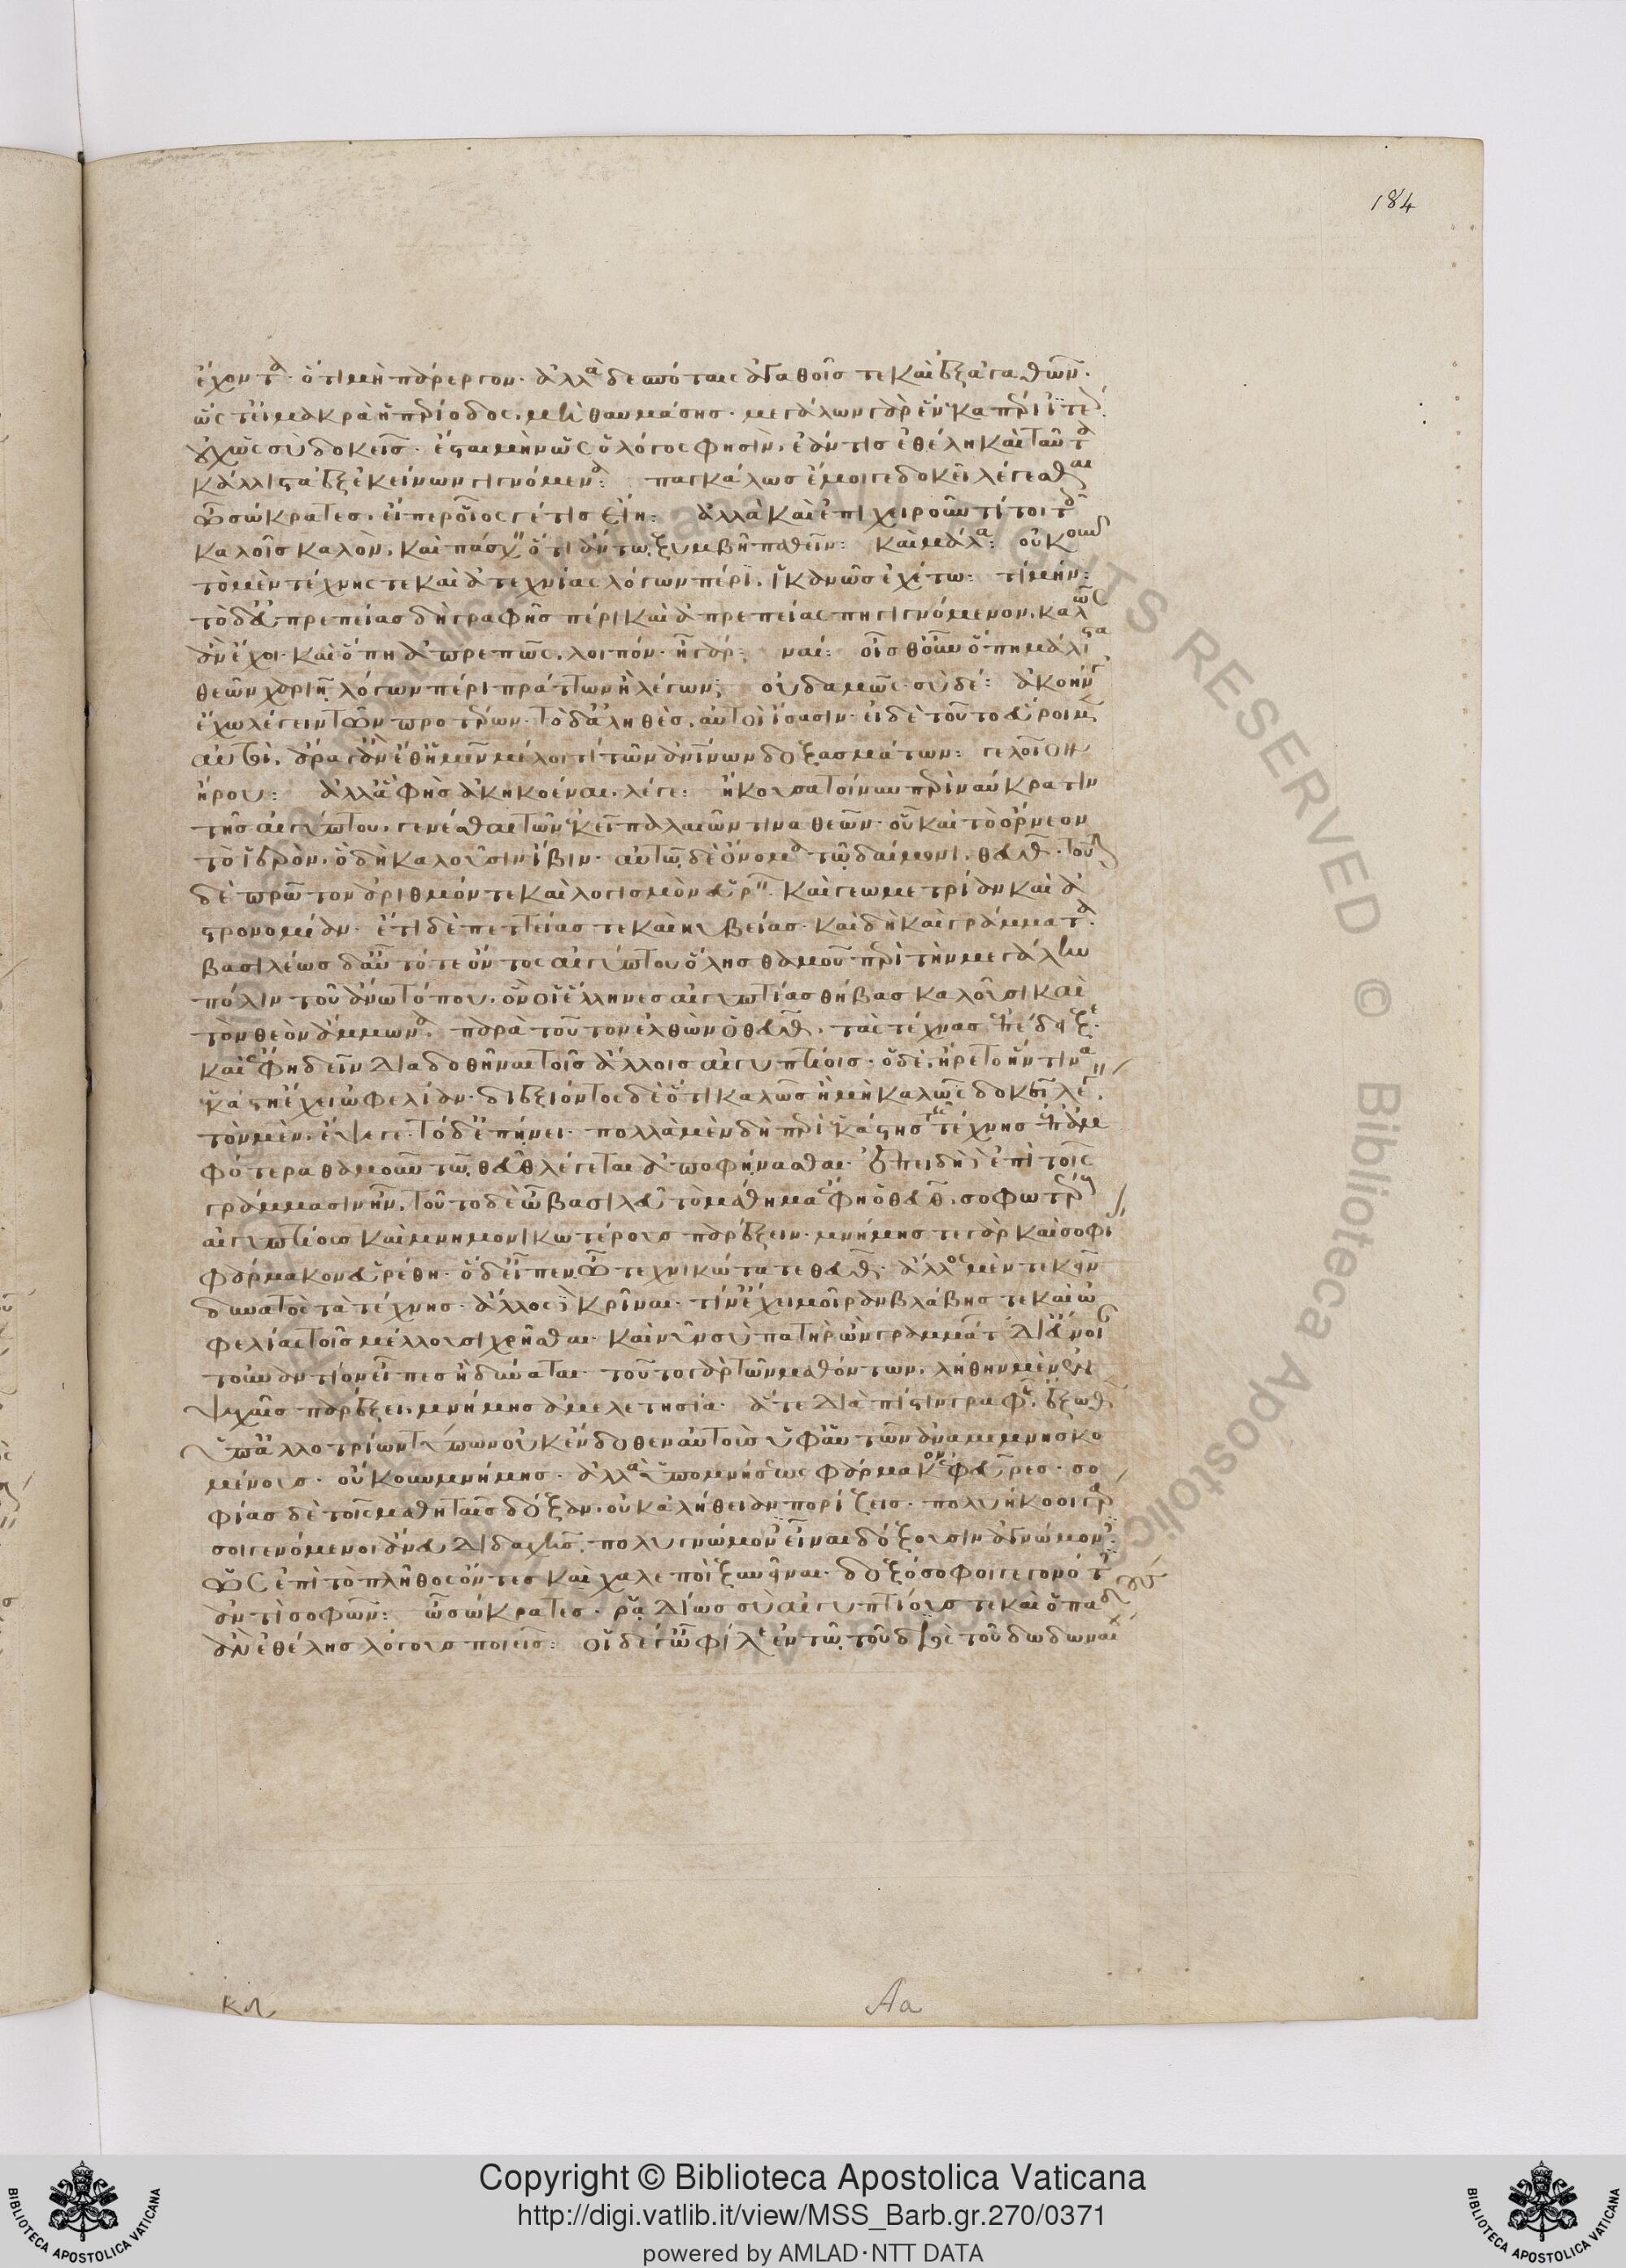 184
ἔχοντα· ὅτι μὴ πάρεργον· ἀλλὰ δεσπόταις ἀγαθοῖς τε καὶ ἐξ ἀγαθῶν·
ὥστ' εἰ μακρὰ ἡ περίοδος, μὴ θαυμάσης· μεγάλων γὰρ ἕνεκα περιιτέον·
οὐχ ὡς σὺ δοκεῖς· ἔσται μὴν ὡς ὁ λόγος φησίν, ἐάν τις ἐθέλη καὶ ταῦτα
κάλλιστα ἐξ ἐκείνων γιγνόμενα: παγκάλως ἔμοιγε δοκεῖ λέγεσθαι
ὦ σώκρατες, εἴπερ οἷός γέ τις εἴη: ἀλλὰ καὶ ἐπιχειροῦντί τοι τοῖς
καλοῖς καλὸν, καὶ πάσχειν ὅτι ἄν τω ξυμβῆ παθεῖν: καὶ μάλα: οὐκοῦν
τὸ μὲν τέχνης τε καὶ ἀτεχνίας λόγων πέρι, ἱκανῶς ἐχέτω: τί μήν:
τὸ δ' εὐπρεπείας δὴ γραφῆς πέρι καὶ ἀπρεπείας πη γιγνόμενον, καλῶς
ἂν ἔχοι· καὶ ὅπη ἀπρεπῶς, λοιπόν· ἦ γάρ: ναί: οἶσθ' οὖν ὅπη μάλιστα
θεῶ χαριῆ λόγων πέρι πράττων ἢ λέγων; οὐδαμῶς· σὺ δέ: ἀκοήν γ'
ἔχω λέγειν τῶν προτέρων· τὸ δ' ἀληθὲς, αὐτοὶ ἴσασιν· εἰ δὲ τοῦτο εὕροιμεν
αὐτοὶ, ἆρά γ' ἂν ἔθ' ἡμῖν μέλοι τί τῶν ἀνθρωπίνων δοξασμάτων: γελοῖον
ἤρου: ἀλλ' ἃ φὴς ἀκηκοέναι, λέγε: ἤκουσα τοίνυν περὶ ναύκρατιν
τῆς αἰγύπτου, γενέσθαι τῶν ἐκεῖ παλαιῶν τινα θεῶν· οὗ καὶ τὸ ὄρνεον
τὸ ἱερὸν, ὃ δὴ καλοῦσιν ἶβιν· αὐτῶ δὲ ὄνομα τῶ δαίμονι, θεύθ· τοῦτον
δὲ πρῶτον ἀριθμόν τε καὶ λογισμὸν εὑρεῖν· καὶ γεωμετρίαν καὶ ἀ
στρονομίαν· ἔτι δὲ πεττείας τε καὶ κυβείας· καὶ δὴ καὶ γράμματα·
βασιλέως δ' αὖ τότε ὄντος αἰγύπτου ὅλης θαμοῦ περὶ τὴν μεγάλην
πόλιν τοῦ ἄνω τόπου, ὃν οἱ ἕλληνες αἰγυπτίας θήβας καλοῦσι καὶ
τὸν θεὸν ἄμμωνα, παρὰ τοῦτον ἐλθὼν ὁ θεύθ, τὰς τέχνας ἐπέδειξε·
καὶ ἔφη δεῖν διαδοθῆναι τοῖς ἄλλοις αἰγυπτίοις· ὁ δὲ, ἤρετο ἥντινα
ἑκάστη ἔχει ὠφελίαν· διεξιόντος δὲ ὅτι καλῶς ἢ μὴ καλῶς δοκεῖ λέγειν,
τὸν μὲν, ἔψεγε· τὸ δ' ἐπήνει· πολλὰ μὲν δὴ περὶ ἑκάστης τῆς τέχνης ἐπ' ἀμ
φότερα θαμοῦν τῶ θεύθ λέγεται ἀποφήνασθαι· ἐπειδὴ δὲ ἐπὶ τοῖς
γράμμασιν ἦν, τοῦτο δὲ ὦ βασιλεῦ τὸ μάθημα ἔφη ὁ θεύθ, σοφωτέρους
αἰγυπτίους καὶ μνημονικωτέρους παρέξειν· μνήμης τε γὰρ καὶ σοφίας
φάρμακον εὑρέθη· ὁ δ' εἶπεν, ὦ τεχνικώτατε θεύθ, ἄλλος μὲν τεκεῖν
δυνατὸς τὰ τέχνης· ἄλλος δὲ κρῖναι, τίν' ἔχει μοῖραν βλάβης τε καὶ ὠ
φελίας τοῖς μέλλουσι χρῆσθαι· καὶ νῦν σὺ πατὴρ ὢν γραμμάτων δι' εὔνοιαν
τοὐναντίον εἶπες ἢ δύναται· τοῦτο γὰρ τῶν μαθόντων, λήθην μὲν ἐν
ψυχαῖς παρέξει, μνήμης ἀμελετησία· ἅτε διὰ πίστιν γραφῆς ἔξωθεν
ὑπ' ἀλλοτρίων τύπων οὐκ ἔνδοθεν αὐτοὺς ὑφ' αὑτῶν ἀναμιμνησκο
μένους· οὔκουν μνήμης· ἀλλὰ ὑπομνήσεως φάρμακον εὗρες· σο
φίας δὲ τοῖς μαθηταῖς δόξαν, οὐκ ἀλήθειαν πορίζεις· πολυήκοοι γάρ
σοι γενόμενοι ἄνευ διδαχῆς, πολυγνώμονες εἶναι δόξουσιν ἀγνώμονες
ὡς ἐπὶ τὸ πλῆθος ὄντες καὶ χαλεποὶ ξυνεῖναι· δοξόσοφοι γεγονότες
ἀντὶ σοφῶν: ὦ σώκρατες· ῥαδίως σὺ αἰγυπτίους τε καὶ ὁποδαποὺς
ἂν ἐθέλης λόγους ποιεῖς: οἱ δέ γ' ὦ φίλε ἐν τῶ τοῦ διὸς τοῦ δωδωναί
Aa
Copyright © Biblioteca Apostolica Vaticana
http://digi.vatlib.it/view/MSS_Barb.gr.270/0371
powered by AMLAD·NTT DATA